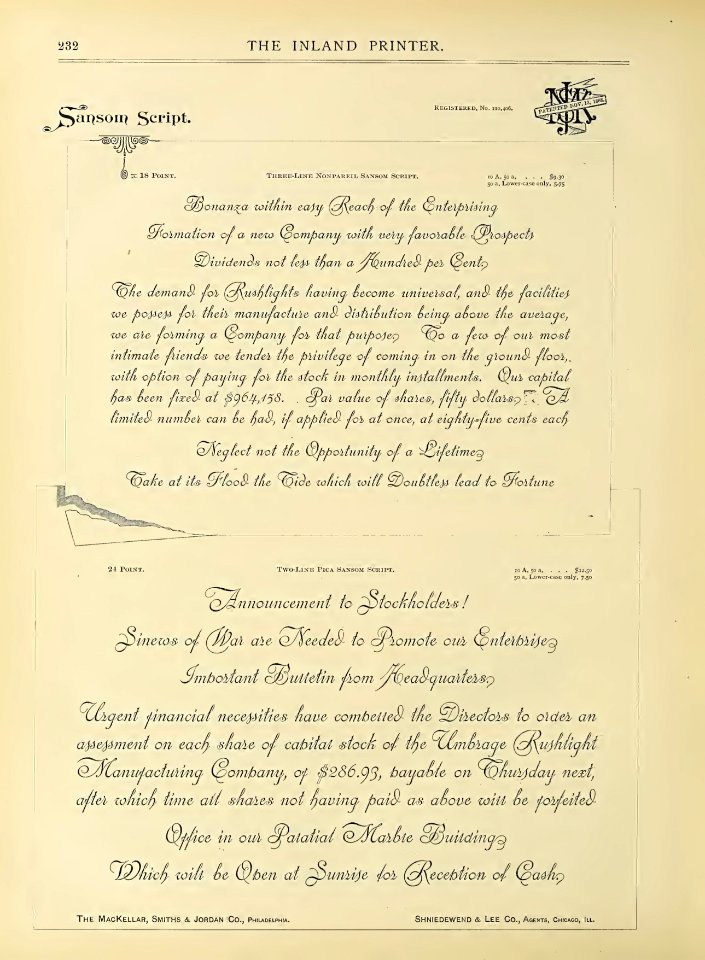 232
THE INLAND PRINTER.
Sansom Script.
REGISTERED, No. 122,406.
PATENTED NOV. 13, 1888.
18 POINT.
THREE-LINE NONPAREIL SANSOM SCRIPT.
10 A, 50 a, . . . $9.30
50 a, Lower-case only, 5.95
Bonanza within easy Reach of the Enterprising
Formation of a new Company with very favorable Prospects
Dividends not less than a Hundred per Cent
The demand for Rushlights having become universal, and the facilities
we possess for their manufacture and distribution being above the average,
we are forming a Company for that purpose To a few of our most
intimate friends we tender the privilege of coming in on the ground floor,
with option of paying for the stock in monthly installments. Our capital
has been fixed at $964,158. Par value of shares, fifty dollars A
limited number can be had, if applied for at once, at eighty-five cents each
Neglect not the Opportunity of a Lifetime
Take at its Flood the Tide which will Doubtless lead to Fortune
24 POINT.
TWO-LINE PICA SANSOM SCRIPT.
10 A, 50 a, . . . $12.50
50 a, Lower-case only, 7.80
Announcement to Stockholders!
Sinews of War are Needed to Promote our Enterprise
Important Bulletin from Headquarters
Urgent financial necessities have compelled the Directors to order an
assessment on each share of capital stock of the Umbrage Rushlight
Manufacturing Company, of $286.93, payable on Thursday next,
after which time all shares not having paid as above will be forfeited
Office in our Palatial Marble Building
Which will be Open at Sunrise for Reception of Cash
THE MACKELLAR, SMITHS & JORDAN CO., PHILADELPHIA.
SHNIEDEWEND & LEE CO., AGENTS, CHICAGO, ILL.